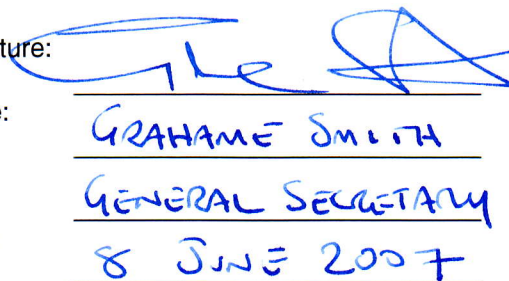 ture:
e:
GRAHAME SMITH
GENERAL SECRETARY
8 JUNE 2007